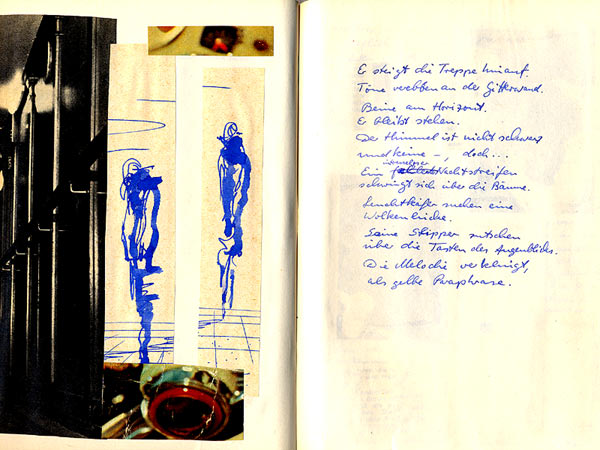 Er steigt die Treppe hinauf.
Töne verebben an der Gitterwand.
Beine am Horizont.
Er bleibt stehen.
Der Himmel ist nicht schwarz
und keine –, doch...
Ein Nachtstreifen
schwingt sich über die Bäume.
Leuchtkäfer suchen eine
Wolkenlücke.
Seine Skipper rutschen
über die Tasten des Augenblickes.
Die Melodie verklingt,
als gelbe Paraphrase.